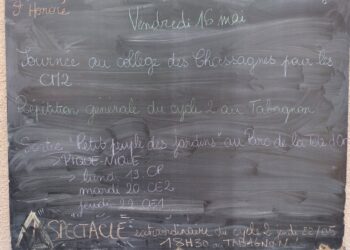 St Honoré
Vendredi 16 mai
Journée au collège des Chassagnes pour les
CM2
Répétition générale du cycle 2 au Tabagnon
Sortie "Petit peuple des jardins" au Parc de la
PIQUE-NIQUE
> lundi 19 CP
> mardi 20 CE2
> jeudi 22 CE1
SPECTACLE extraordinaire du cycle 2 jeudi 22/05
18H30 au TABAGNON !